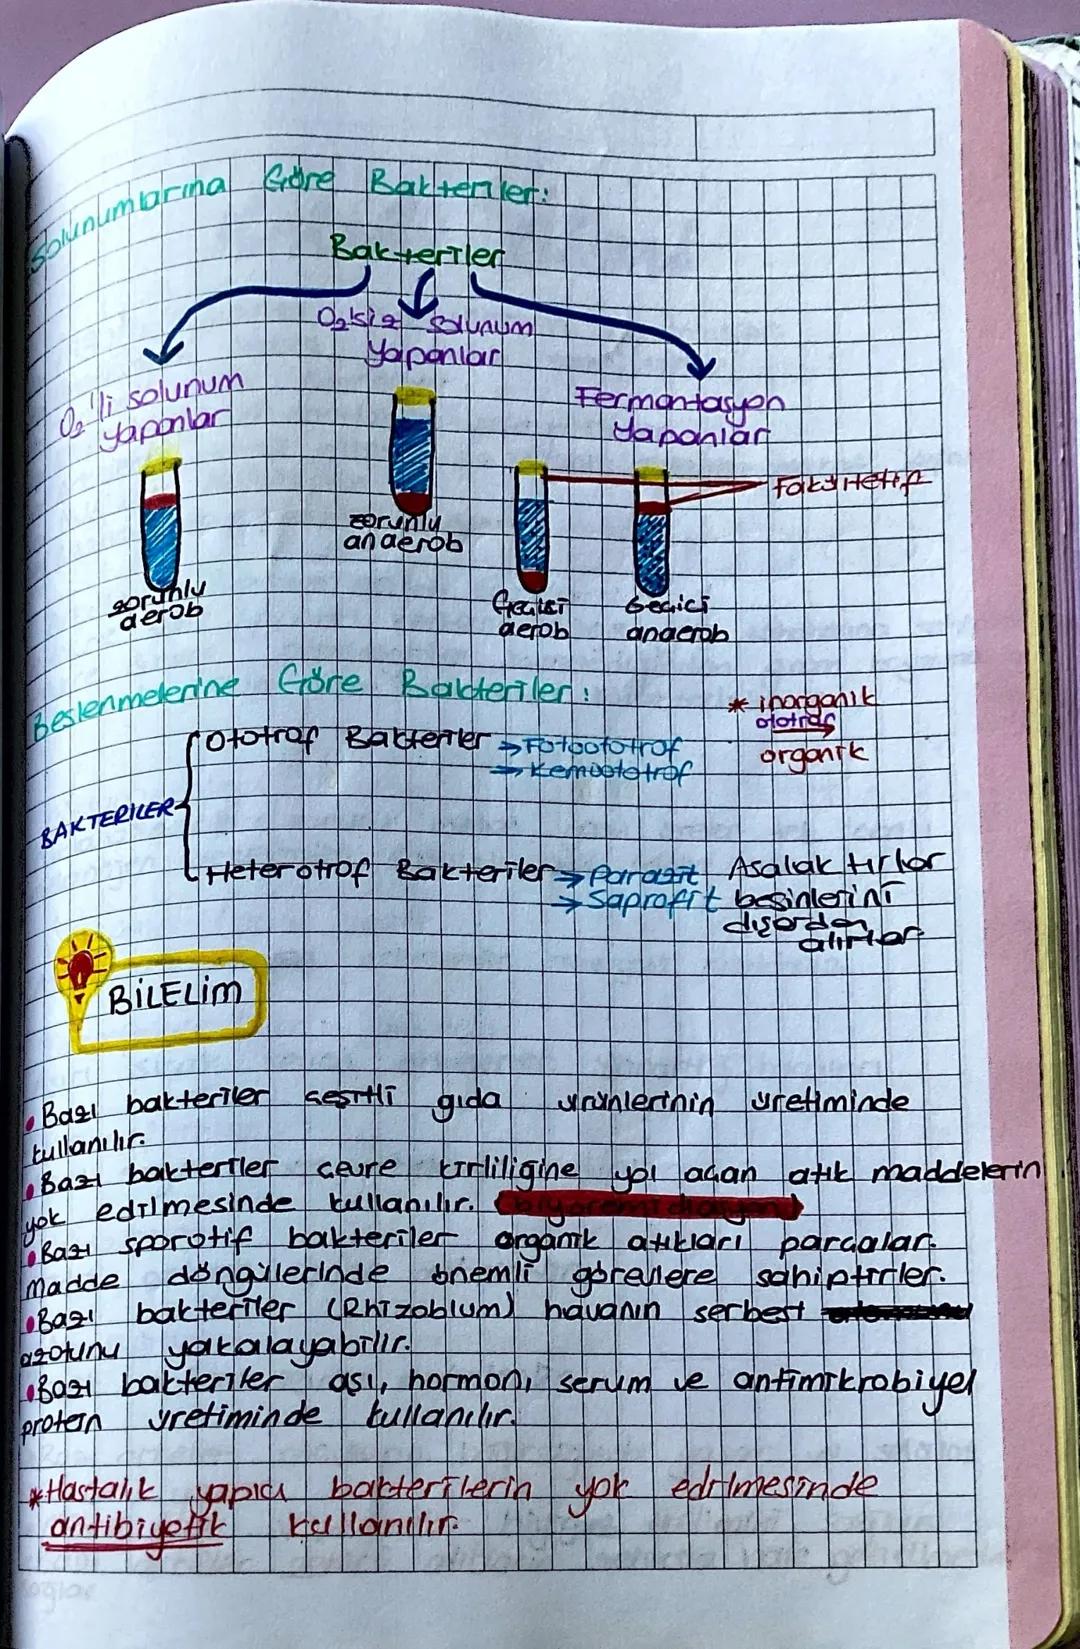 Solunumlarına Göre Bakteriler:
Bakteriler
O₂'siz solunum
yapanlar
O₂'li solunum
yapanlar
Fermantasyon
Yapanlar
Fakültetif
zorunlu
anaerob
zorunlu
aerob
Geçici
aerob
Geçici
anaerob
Beslenmelerine Göre Bakteriler:
* inorganik
ototrof
organik
Ototrof Bakteriler → Fotoototrof
→ Kemoototrof
BAKTERİLER
Heterotrof Bakteriler → Parazit
→ Saprofit
Asalaktırlar
besinlerini
dışardan
alırlar
BİLELİM
• Bazı bakteriler çeşitli gıda ürünlerinin üretiminde
kullanılır.
• Bazı bakteriler çevre kirliligine yol açan atık maddelerin
yok edilmesinde kullanılır. (biyoremidiasyon)
• Bazı sporotif bakteriler organik atıkları parçalar.
Madde döngülerinde önemli görevlere sahiptirler.
• Bazı bakteriler (Rhizobium) havanın serbest
azotunu yakalayabilir.
• Bazı bakteriler aşı, hormon, serum ve antimikrobiyel
protein üretiminde kullanılır.
* Hastalık yapıcı bakterilerin yok edilmesinde
antibiyotik kullanılır.